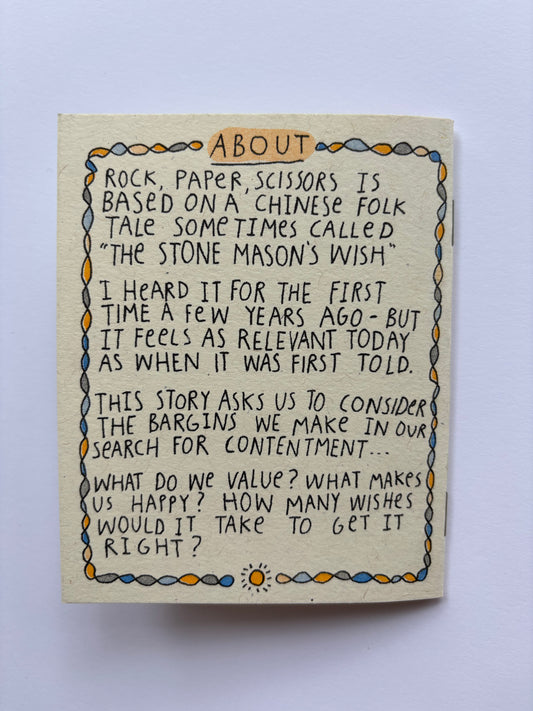 ABOUT
ROCK, PAPER, SCISSORS IS
BASED ON A CHINESE FOLK
TALE SOMETIMES CALLED
"THE STONE MASON'S WISH"
I HEARD IT FOR THE FIRST
TIME A FEW YEARS AGO - BUT
IT FEELS AS RELEVANT TODAY
AS WHEN IT WAS FIRST TOLD.
THIS STORY ASKS US TO CONSIDER
THE BARGINS WE MAKE IN OUR
SEARCH FOR CONTENTMENT...
WHAT DO WE VALUE? WHAT MAKES
US HAPPY? HOW MANY WISHES
WOULD IT TAKE TO GET IT
RIGHT?